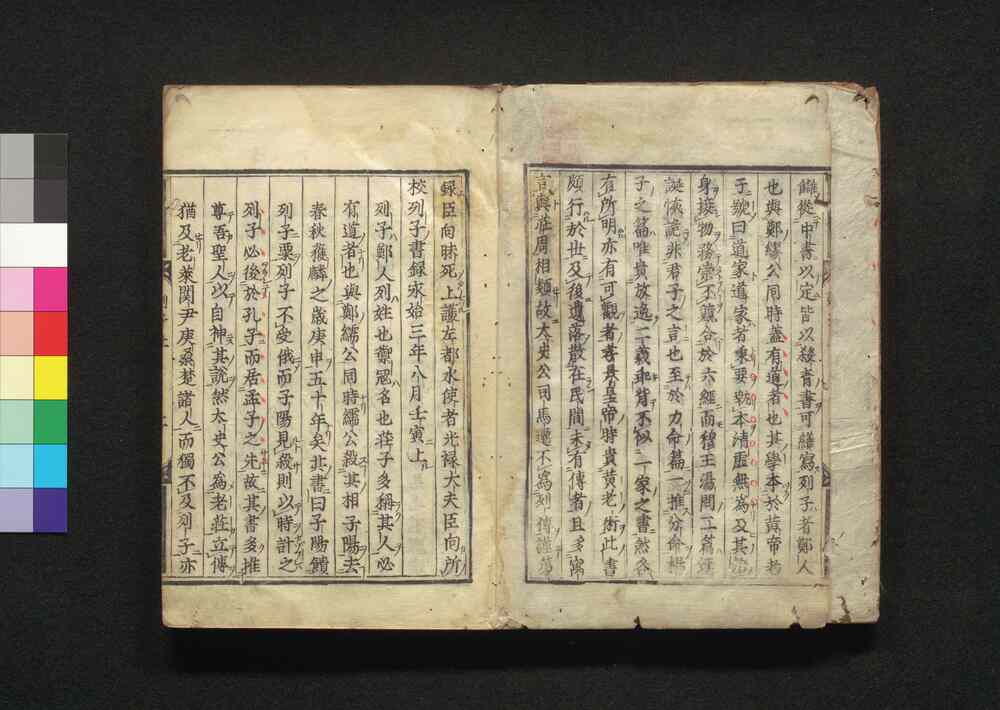 讎從中書以定皆以殺青書可繕寫列子者鄭人
也與鄭繆公同時蓋有道者也其學本於黃帝老
子號曰道家道家者秉要執本清虛無為及其治
身接物務崇不競合於六經而穆王湯問二篇迂
誕恢詭非君子之言也至於力命篇一推分命楊
子之篇唯貴放逸二義乖背不似一家之書然各
有所明亦有可觀者孝景皇帝時貴黃老術此書
頗行於世及後遺落散在民間未有傳者且多寓
言與莊周相類故太史公司馬遷不為列傳謹第
録臣向昧死上護左都水使者光祿大夫臣向所
校列子書録永始三年八月壬寅上
列子鄭人列姓也禦冦名也莊子多稱其人必
有道者也與鄭繻公同時繻公殺其相子陽去
春秋獲麟之歲庚申五十年矣其書曰子陽饋
列子粟列子不受俄而子陽見殺則以時計之
列子必後於孔子而居孟子之先故其書多推
尊吾聖人以自神其說然太史公為老莊立傳
猶及老萊関尹庚桑楚諸人而獨不及列子亦